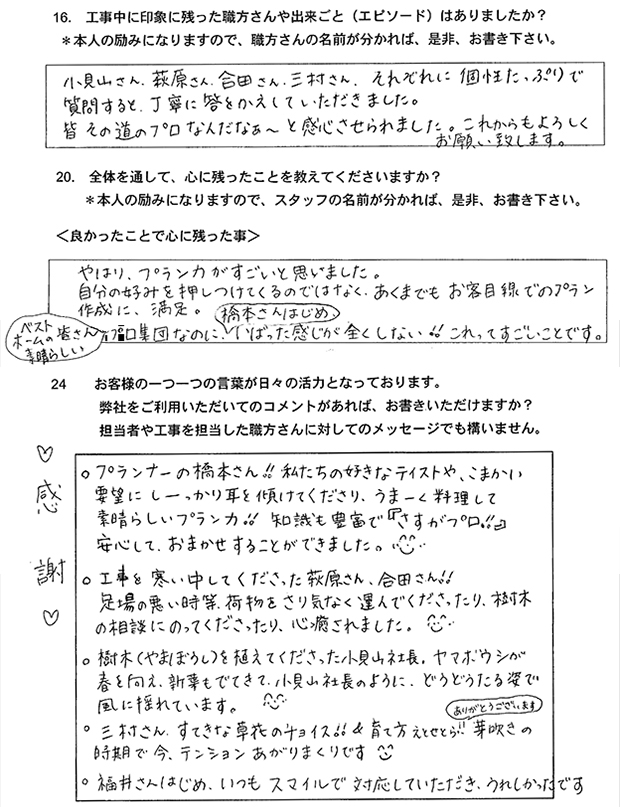 16. 工事中に印象に残った職方さんや出来ごと（エピソード）はありましたか？
＊本人の励みになりますので、職方さんの名前が分かれば、是非、お書き下さい。
小見山さん、萩原さん、合田さん、三村さん、それぞれに個性たっぷりで
質問すると、丁寧に答をかえしていただきました。
皆その道のプロなんだなぁ〜と感心させられました。これからもよろしく
お願い致します。
20. 全体を通して、心に残ったことを教えてくださいますか？
＊本人の励みになりますので、スタッフの名前が分かれば、是非、お書き下さい。
＜良かったことで心に残った事＞
やはり、プラン力がすごいと思いました。
自分の好みを押しつけてくるのではなく、あくまでもお客目線でのプラン
作成に、満足。 橋本さんはじめ
ベストホームの皆さん素晴らしい
プロ集団なのに、いばった感じが全くしない!! これってすごいことです。
24 お客様の一つ一つの言葉が日々の活力となっております。
弊社をご利用いただいてのコメントがあれば、お書きいただけますか？
担当者や工事を担当した職方さんに対してのメッセージでも構いません。
♡感謝♡
○プランナーの橋本さん!! 私たちの好きなテイストや、こまかい
要望にしーっかり耳を傾けてくださり、うまーく料理して
素晴らしいプラン力!! 知識も豊富で『さすがプロ!!』
安心して、おまかせすることができました。
○工事を寒い中してくださった萩原さん、合田さん!!
足場の悪い時等、荷物をさり気なく運んでくださったり、樹木
の相談にのってくださったり、心癒されました。
○樹木（やまぼうし）を植えてくださった小見山社長。ヤマボウシが
春を向え、新葉もでてきて、小見山社長のように、どうどうたる姿で
風に揺れています。
ありがとうございます
○三村さん、すてきな草花のチョイス!! & 育て方えとせとら!! 芽吹きの
時期で今、テンションあがりまくりです
○福井さんはじめ、いつもスマイルで対応していただき、うれしかったです